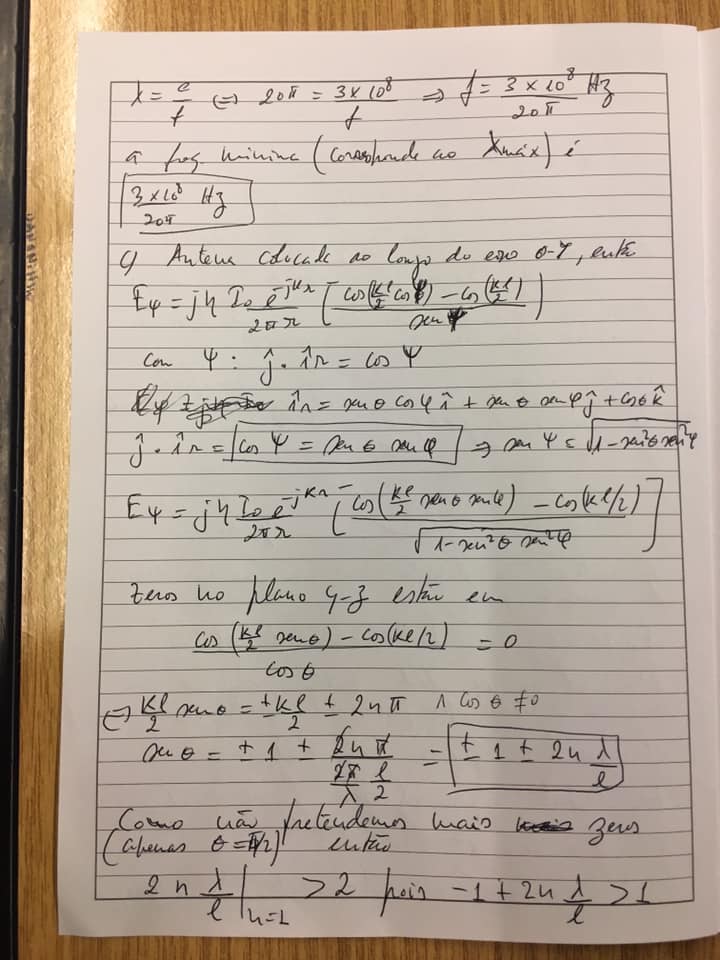 λ = c/f ⇔ 20π = 3×10⁸/f ⇒ f = 3×10⁸/20π Hz
a freq. mínima (corresponde ao λmáx) é
3×10⁸/20π Hz
c) Antena colocada ao longo do eixo O-Y, então
Eψ = jη I₀ e^(-jkr)/2πr [cos(kl/2 cos ψ) - cos(kl/2) / sen ψ]
com ψ : ĵ · îr = cos ψ
îr = senθ cosφ î + senθ senφ ĵ + cosθ k̂
ĵ · îr = cos ψ = senθ senφ ⇒ sen ψ = √(1 - sen²θ sen²φ)
Eψ = jη I₀ e^(-jkr)/2πr [cos(kl/2 senθ senφ) - cos(kl/2) / √(1 - sen²θ sen²φ)]
Zeros no plano y-z estão em
cos(kl/2 senθ) - cos(kl/2) / cosθ = 0
⇔ kl/2 senθ = ± kl/2 ± 2nπ ∧ cosθ ≠ 0
senθ = ± 1 ± 2nπ / (2π/λ l/2) = ± 1 ± 2n λ/l
Como não pretendemos mais zeros
(apenas θ = π/2) então
2n λ/l |n=1 > 2 pois -1 + 2n λ/l > 1